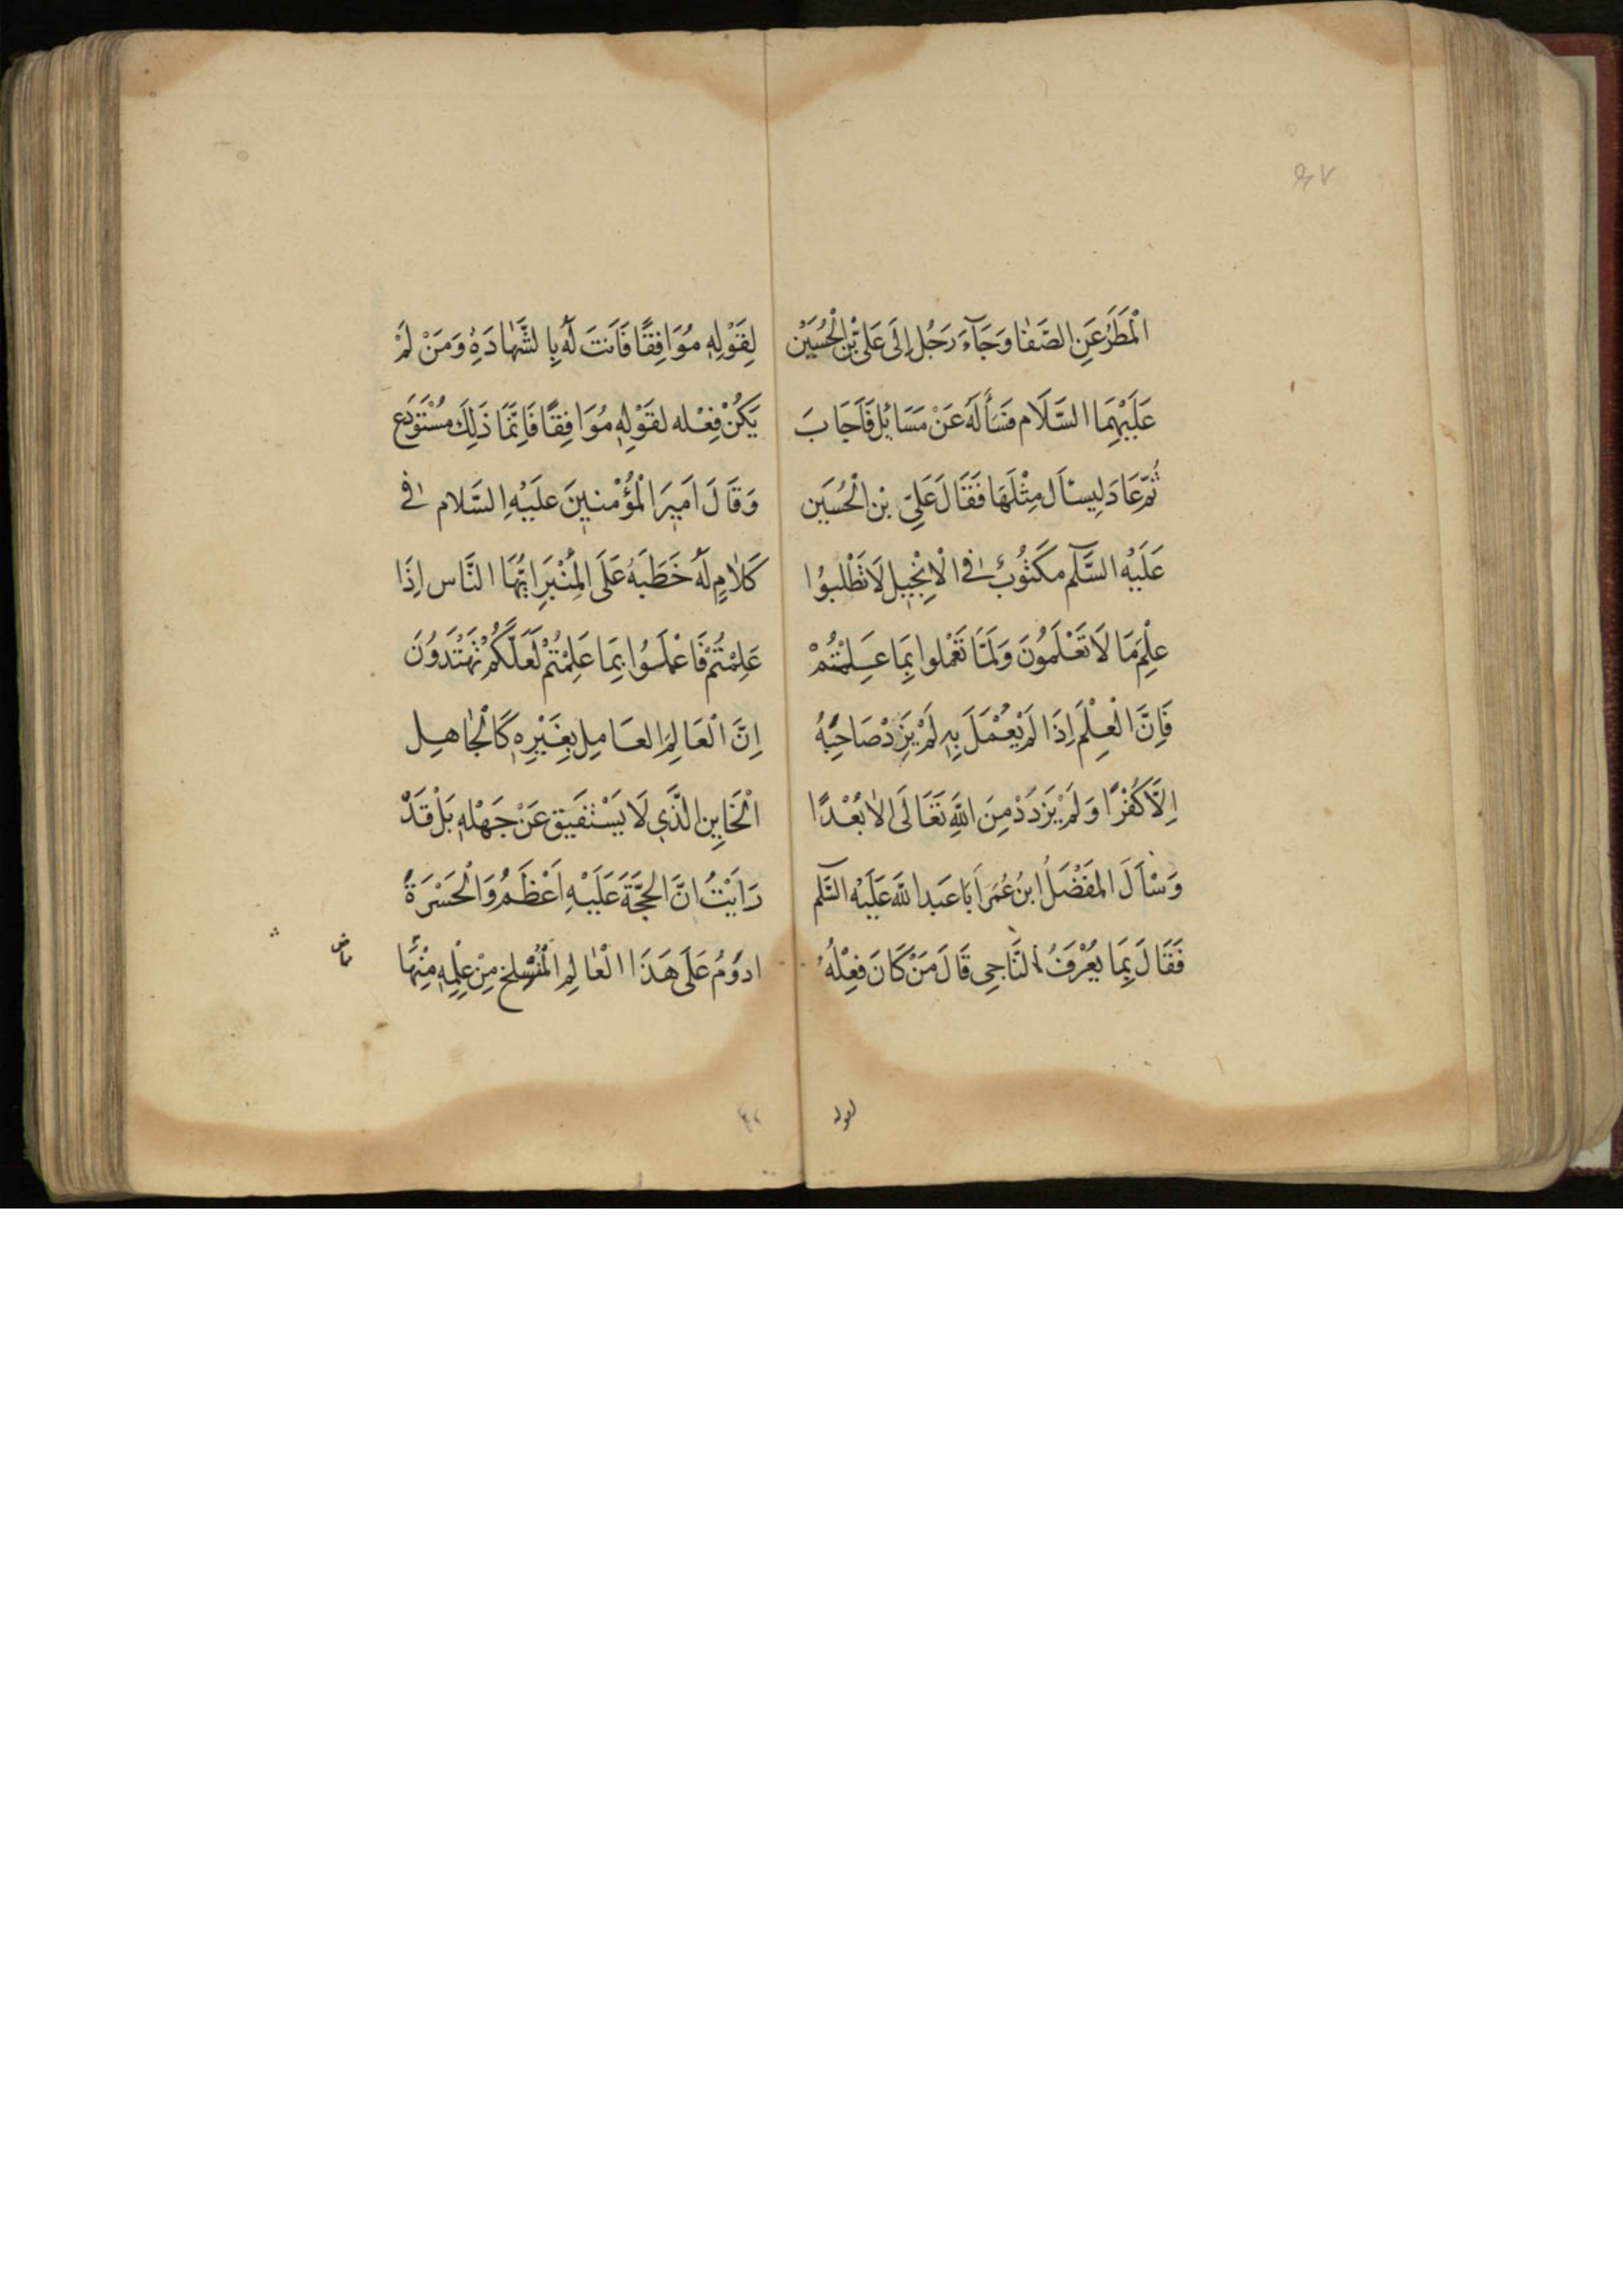 ٩٧
الْمَطَرُ عَنِ الصَّفٰا وَجَآءَ رَجُل اِلَى عَلِىّ بْنِ الْحُسَيْن
عَلَيْهِمَا السَّلَام فَسَأَلَهُ عَنْ مَسَائِل فَاَجَابَ
ثُمَّ عَادَ لِيسئَال مِثْلَهَا فَقَالَ عَلِىّ بن الْحُسَيَن
عَلَيْه السَّلم مَكَتُوُبٌ فى الْاِنْجٖيل لَا تَطْلبوُا
عِلْمَ مَا لَا تَعْلَموُنَ وَلَمَّا تَعْمَلوا بِمَا عَلِمْتُمْ
فَاِنَّ الْعِلْمَ اِذَا لَمْ يُعْمَلَ بِهٖ لَمْ يَزِدْ صَاحِبُهُ
اِلَّا كُفْرًا وَلَمْ يَزدَدْ مِنَ اللهِ تَعَالَى الاٰ بُعْدًا
وَسْاَلَ المَفَضَّلُ ابنُ عُمَرَ اَبَا عَبد الله عَلَيْه السَّلم
فَقَالَ بِمَا يُعْرَفُ النَّاجِى قَالَ مَنْ كَانَ فِعْلُهُ
لقوله
لِقَوْلِهٖ مُوَافِقًا فَاَنتَ لَهُ بِالشَّهٰادَةِ وَمَنْ لَمْ
يَكُنْ فِعْله لقَوْلِهٖ مُوَافِقًا فَاِنَّمَا ذَلِكَ مُسْتَوْدَع
وَقَالَ اَمٖيرَ الْمُؤْمنٖينَ عَلَيْهِ السَّلام فى
كَلاٰمٍ لَهُ خَطَبَهُ عَلَى الْمِنْبَرَ ايُّهَا النَّاس اِذَا
عَلِمْتُمْ فَاعْمَلوُا بِمَا عَلِمْتُمْ لَعَلَّكُمْ تَهْتَدوُنَ
اِنَّ الْعَالِمَ العَامِل بِغَيْرِهٖ كَالْجٰاهِل
الْحَايِن الَّذَى لَا يَسْتَفيَق عَنْ جَهْلهٖ بَلْ قَدْ
رَاَيْتُ انَّ الحجَّةَ عَلَيْهِ اَعْظَمُ وَالْحَسْرَةُ
ادوَمُ عَلَى هَذَا الْعٰالِمِ الْمُنْسَلخ مِنْ عِلْمِهٖ مِنْهَا